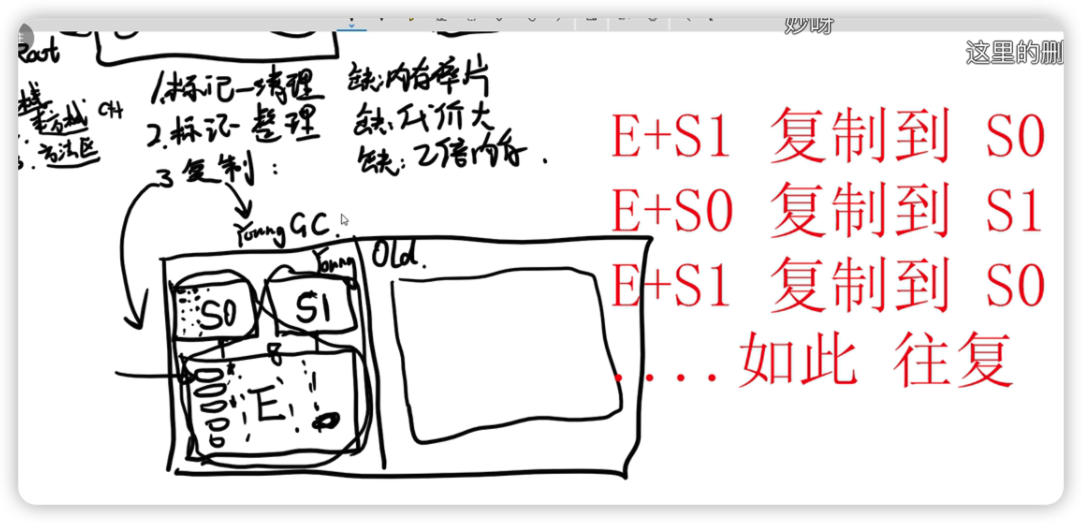 妙呀
这里的删
Root
栈
方法区
1.标记—清理 缺:内存碎片
2.标记—整理 缺:代价大
3 复制: 缺:2倍内存.
Young GC.
Young
Old.
S0
S1
8
E
E+S1 复制到 S0
E+S0 复制到 S1
E+S1 复制到 S0
.....如此 往复